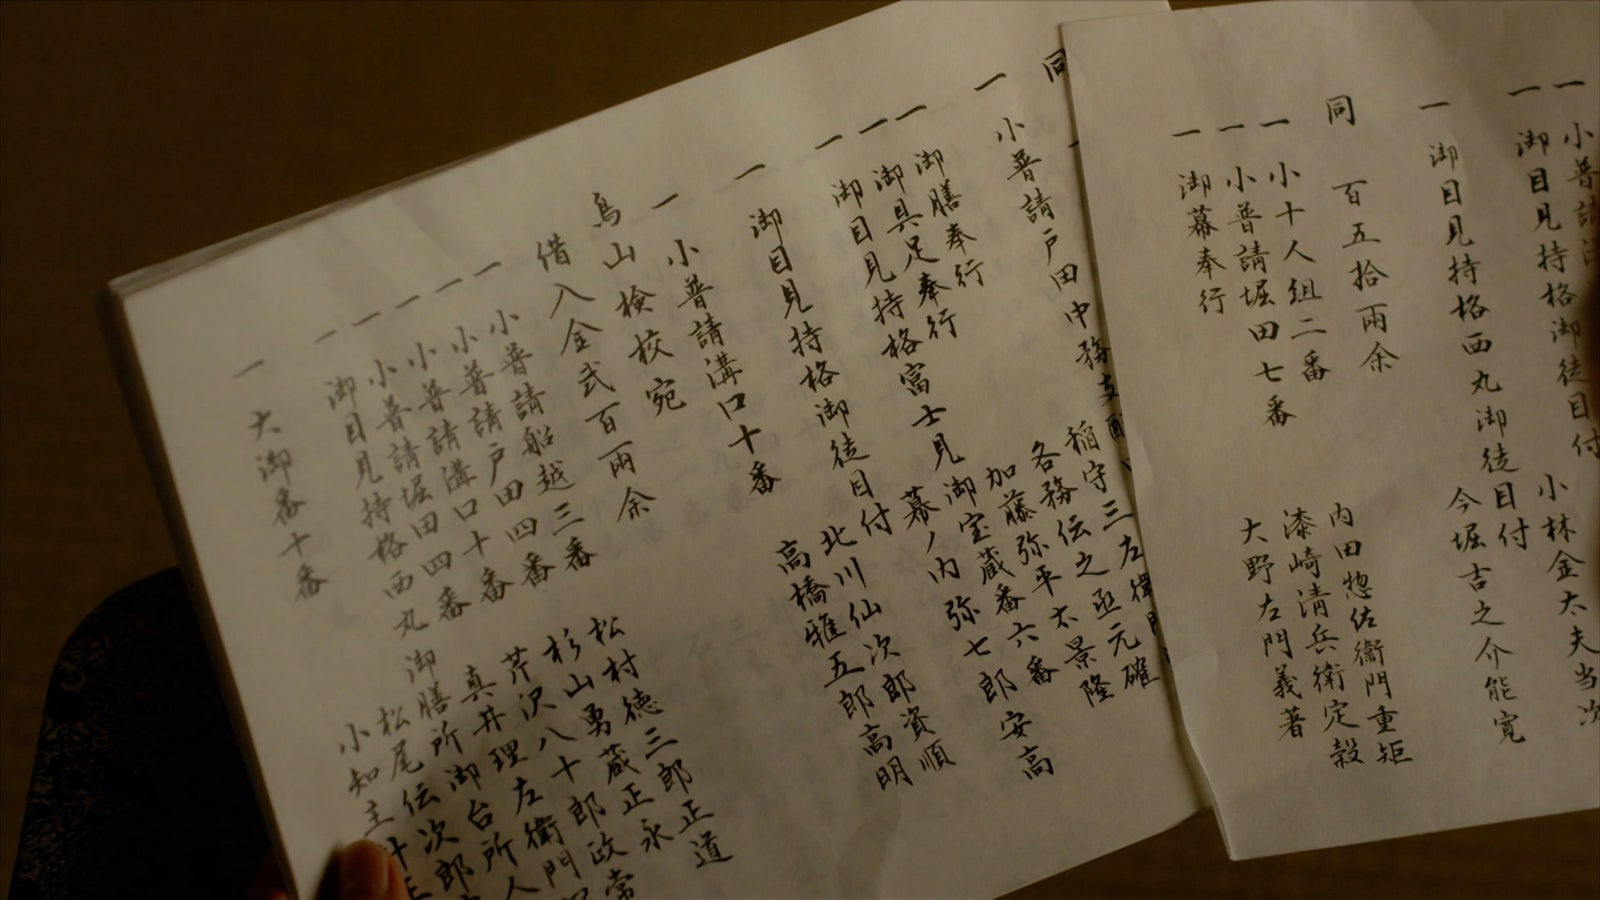 一 小普請
小林金太夫当次
一 御目見持格御徒目付
今堀吉之介能寛
一 御目見持格西丸御徒目付
同 百五拾両余
一 小十人組二番
内田惣佐衞門重矩
一 小普請堀田七番
漆崎清兵衛定穀
一 御幕奉行
大野左門義著
同
稲守三左衛門
一 小普請戸田中務支配
各務伝之亟元確
一 御膳奉行
加藤弥平太景隆
一 御具足奉行
一 御目見持格富士見御宝蔵番六番
幕ノ内弥七郎安高
一 御目見持格御徒目付
北川仙次郎資順
一 小普請溝口十番
高橋雅五郎高明
鳥山検校宛
借入金弐百両余
一 小普請船越三番
松村徳三郎正道
一 小普請戸田四番
杉山勇蔵正永
一 小普請溝口十番
芹沢八十郎政常
一 小普請堀田四番
真井理左衛門
一 御目見持格西丸御膳所御台所人
松尾伝次郎
一 大御番十番
小知主計